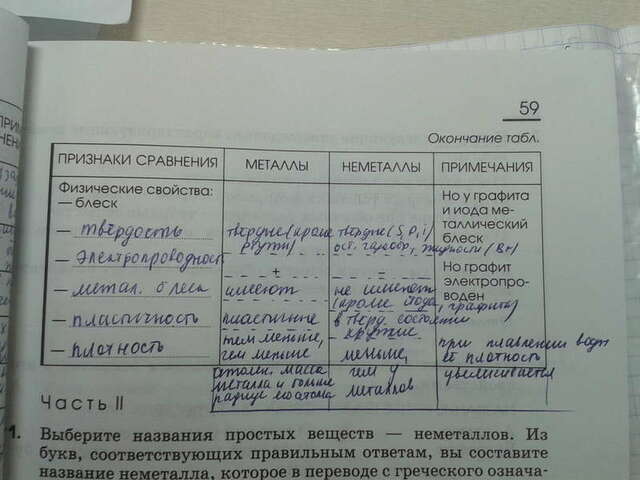 59
Окончание табл.
ПРИЗНАКИ СРАВНЕНИЯ МЕТАЛЛЫ НЕМЕТАЛЛЫ ПРИМЕЧАНИЯ
Физические свойства: Но у графита
— блеск и иода ме-
таллический
блеск
— твёрдость твердые (кроме твердые (S, P, I)
ртути) ост. газообр., жидкости (Br)
— электропроводность + –
Но графит
электропро-
воден
— метал. блеск имеют не имеют
(кроме йода, графита)
— пластичность пластичные в тверд. состоянии
- хрупкие
— плотность тем меньше, меньше, при плавлении воды
чем меньше чем у её плотность
атомн. масса металлов увеличивается
металла и больше
радиус его атома
Часть II
1. Выберите названия простых веществ — неметаллов. Из
букв, соответствующих правильным ответам, вы составите
название неметалла, которое в переводе с греческого означа-